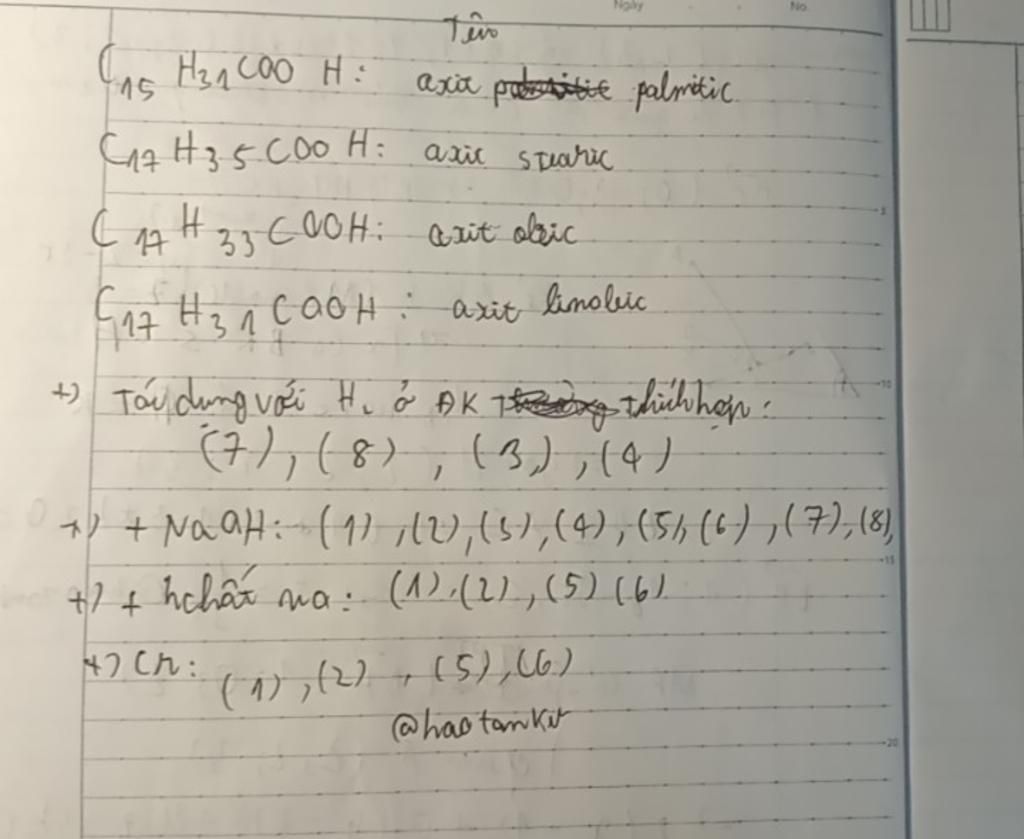 Ngày No.
Tên
C15H31COOH: axit palmitic
C17H35COOH: axic stearic
C17H33COOH: axit oleic
C17H31COOH: axit linoleic
+) Tác dụng với H2 ở ĐK thích hợp:
(7), (8), (3), (4)
+) + NaOH: (1), (2), (3), (4), (5), (6), (7), (8),
+) + hchất na: (1), (2), (5) (6)
+) Cr: (1), (2), (5), (6)
@haotankit
5
10
15
20